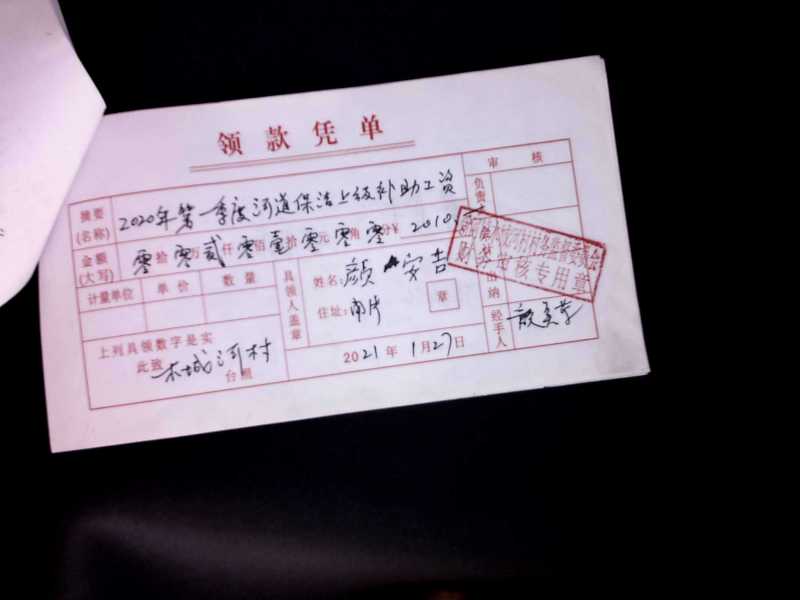 领款凭单
审核
摘要(名称) 2020年第一季度河道保洁上级补助工资
负责
金额(大写) 零拾零贰仟零佰壹拾零元零角零分¥2010.
村务监督委员会
财务审核专用章
计量单位 单价 数量
具领人盖章
姓名:颜安吉
住址:南片
章
出纳
经手人
上列具领数字是实
此致 木城河村 台照
2021年1月27日